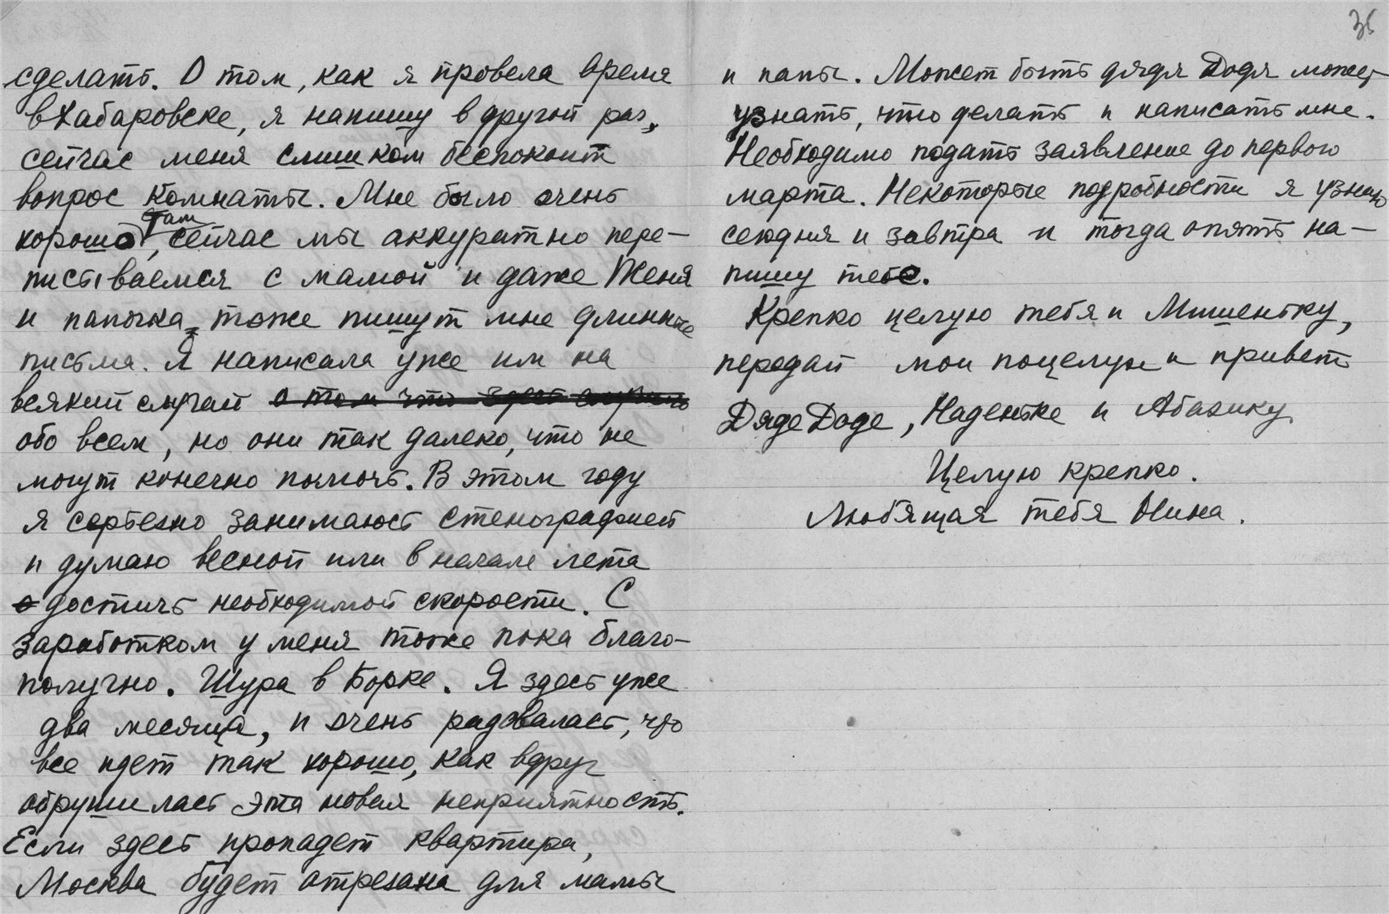 35
сделать. О том, как я провела время
в Хабаровске, я напишу в другой раз,
сейчас меня слишком беспокоит
вопрос комнаты. Мне было очень
там
хорошо, сейчас мы аккуратно пере-
писываемся с мамой и даже Женя
и папочка тоже пишут мне длинные
письма. Я написала уже им на
всякий случай о том что здесь
обо всем, но они так далеко, что не
могут конечно помочь. В этом году
я серьезно занимаюсь стенографией
и думаю весной или в начале лета
достичь необходимой скорости. С
заработком у меня тоже пока благо-
получно. Шура в Борке. Я здесь уже
два месяца, и очень радовалась, что
все идет так хорошо, как вдруг
обрушилась эта новая неприятность.
Если здесь пропадет квартира,
Москва будет отрезана для мамы
и папы. Может быть дядя Додя может
узнать, что делать и написать мне.
Необходимо подать заявление до первого
марта. Некоторые подробности я узнаю
сегодня и завтра и тогда опять на-
пишу тебе.
Крепко целую тебя и Мишеньку,
передай мои поцелуи и привет
Дяде Доде, Наденьке и Абазику
Целую крепко.
Любящая тебя Нина.